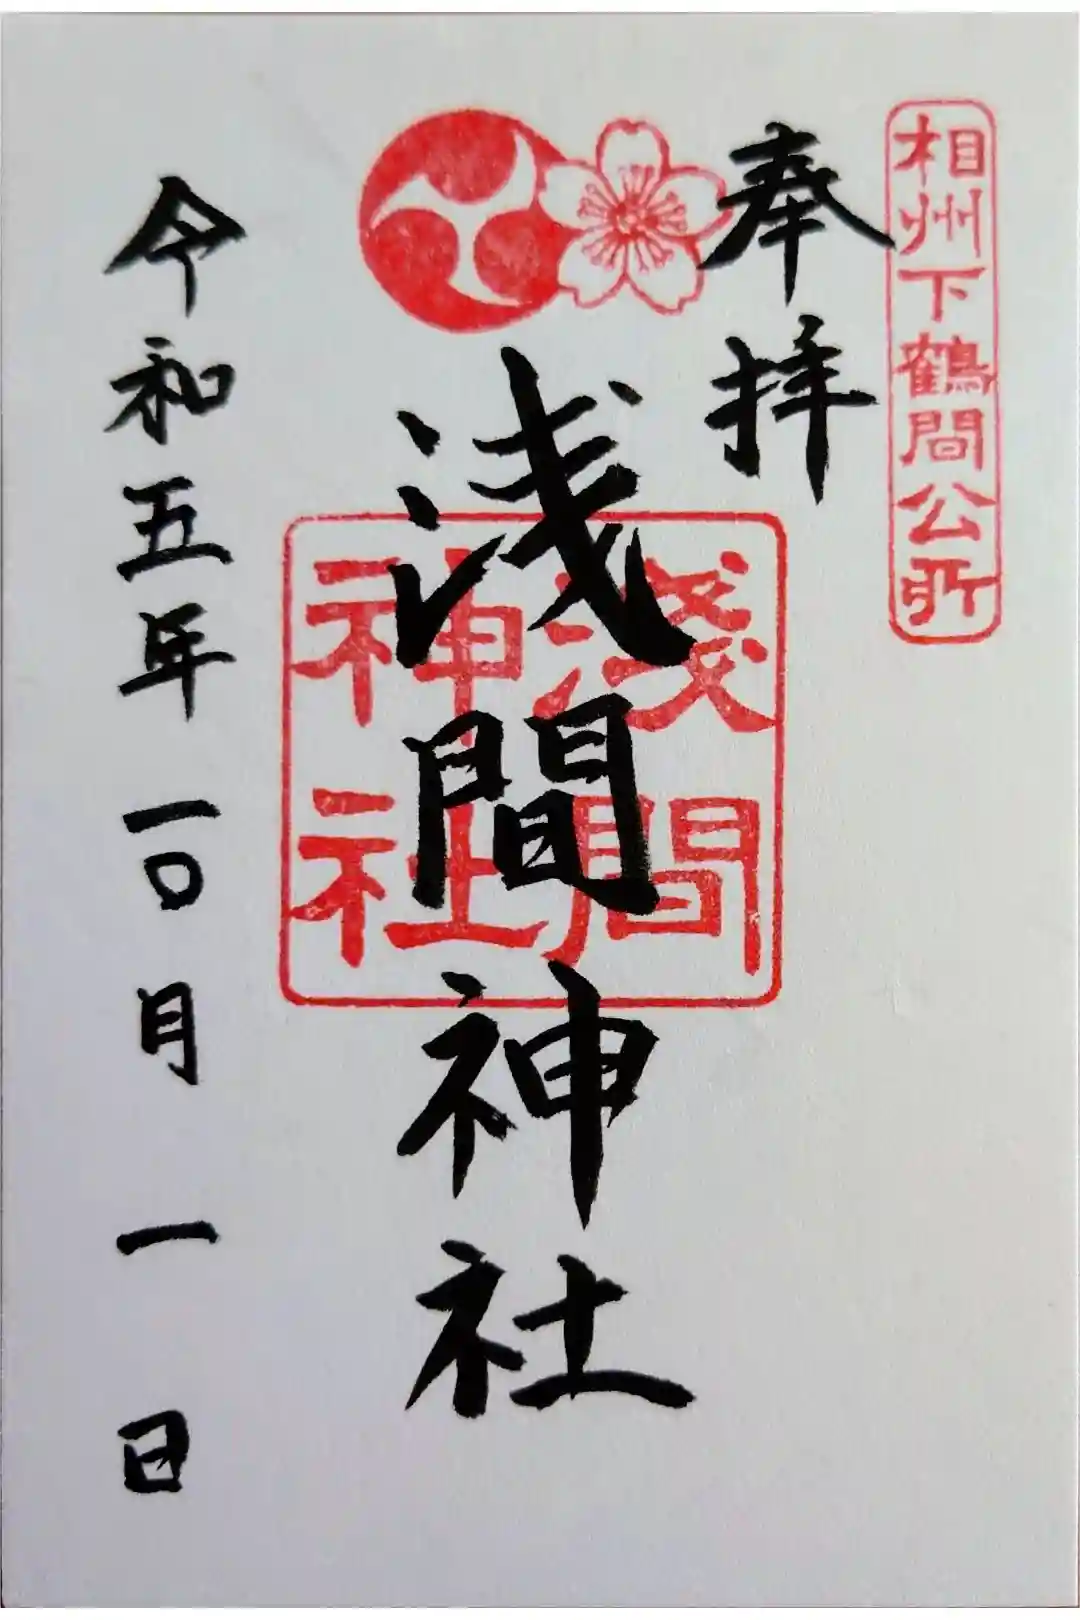 相州下鶴間公所
奉拝
浅間神社
淺間
神社
令和五年一〇月一日